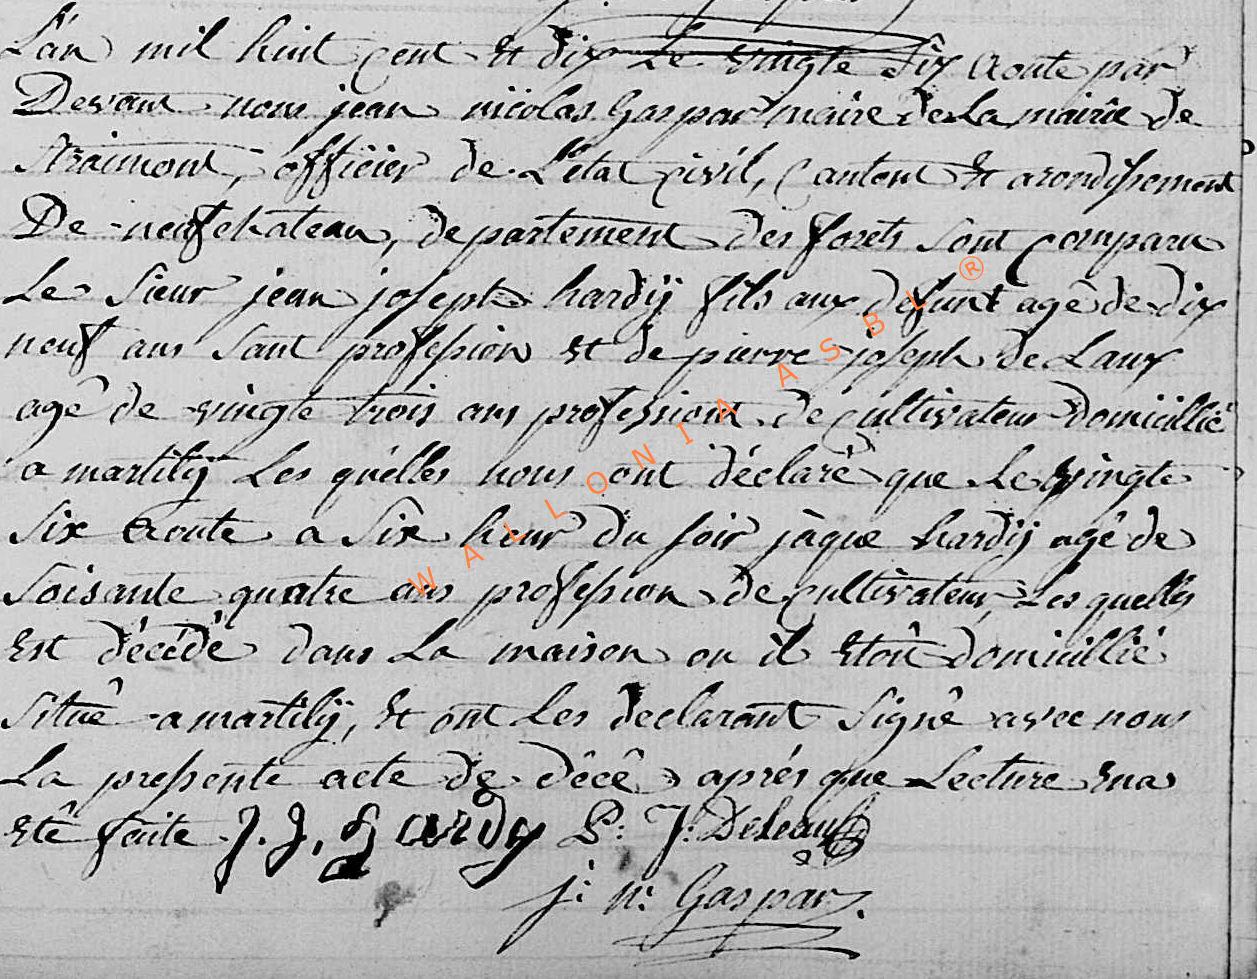 L'an mil huit cent et dix le vingte six aoute par
Devant nous jean nicolas Gaspar maire de la mairie de
Straimont, officier de l'êtat civil, cantont et arondissement
De neufchateau, departement des forets sont comparu
Le sieur jean joseph hardÿ fils aux defunt agê de dix
neuf ans sant profession et de pierre joseph de Laux
agê de vingte trois ans profession de cultivateur Domicillié
a martilÿ Les quélles nous ont déclaré que le vingte
six aoute a six heur du soir jâque hardÿ agê de
soisante quatre ans profession de cultivateur, Les quélles
est décédé dans La maison ou il êtoit domicillié
situê a martilÿ, et ont Les declarant signê avec nous
La pressente acte de décê aprés que Lecture ena
etê faite J. J. Hardy P: J: Deleau
j: n: Gaspar.
WALLONIA ASBL ®